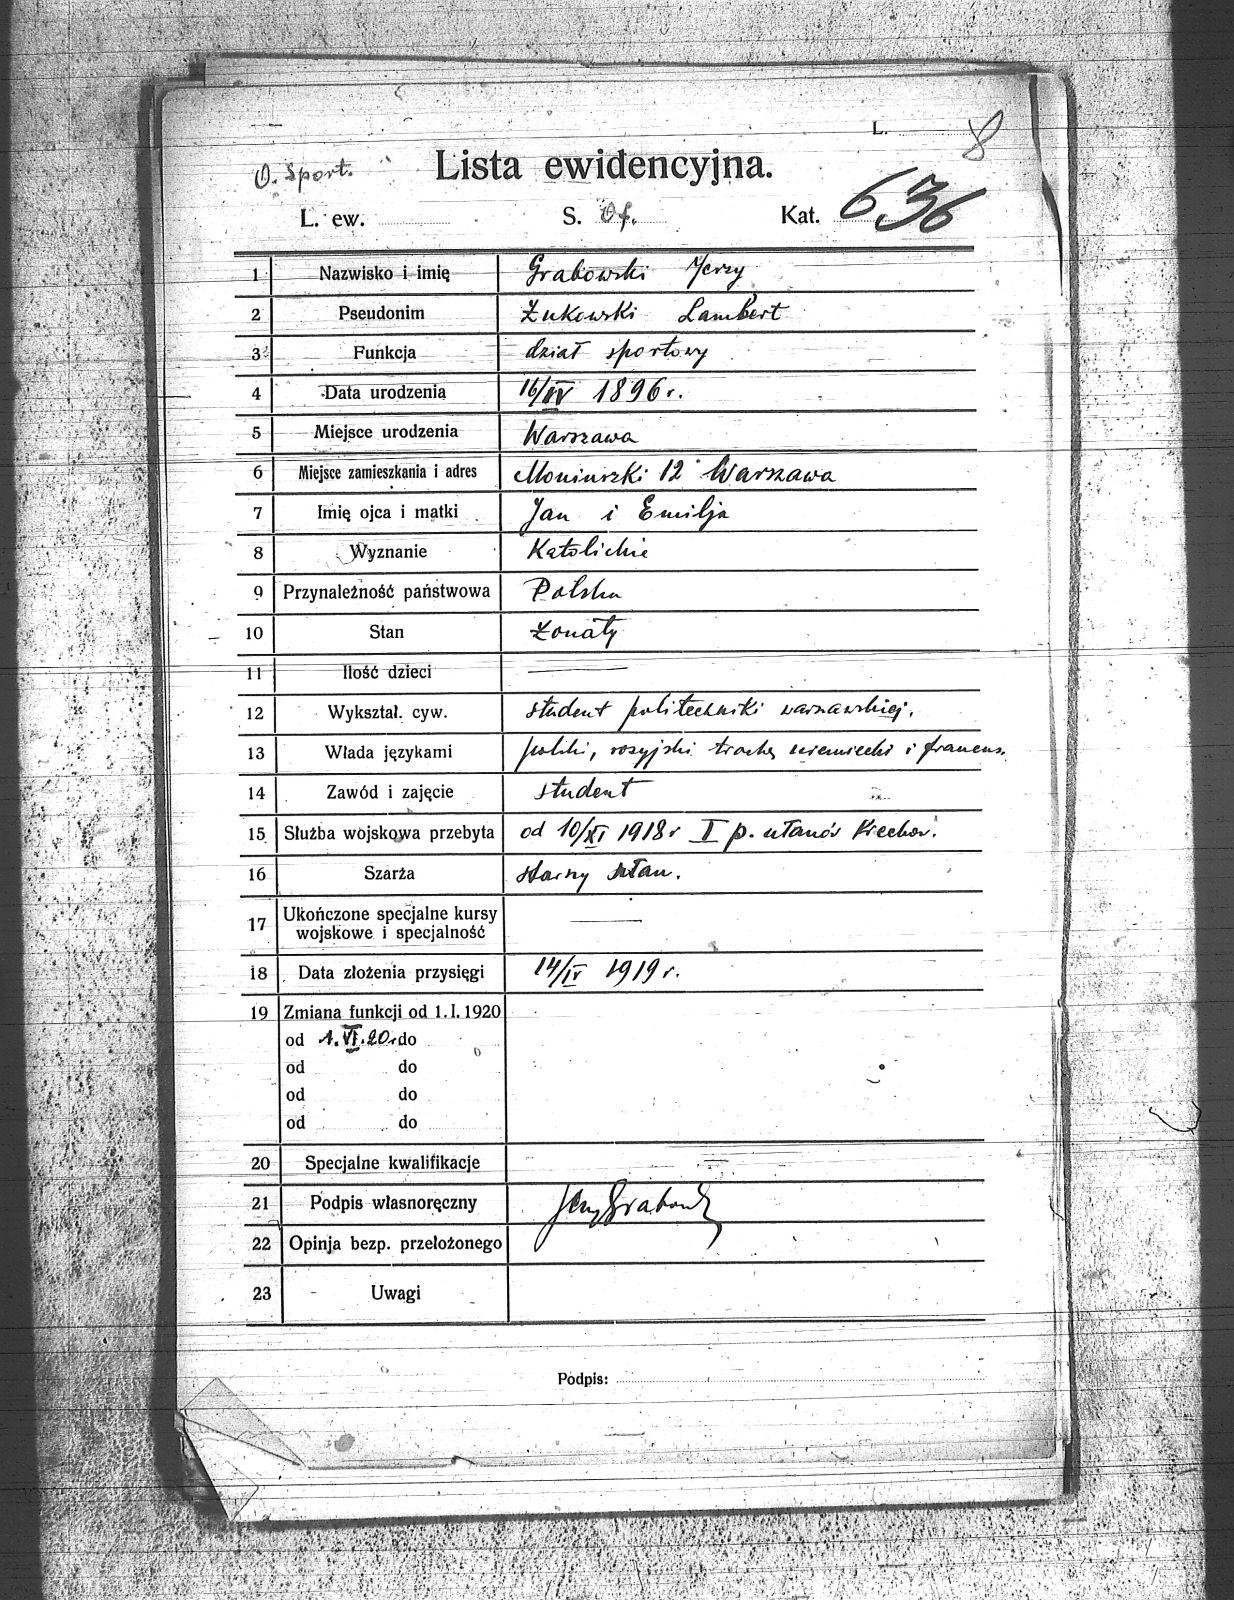 L. 8
O. Sport. Lista ewidencyjna.
L. ew. S. Of. Kat. 636
1 Nazwisko i imię Grabowski Jerzy
2 Pseudonim Żukowski Lambert
3 Funkcja dział sportowy
4 Data urodzenia 16/IV 1896 r.
5 Miejsce urodzenia Warszawa
6 Miejsce zamieszkania i adres Moniuszki 12 Warszawa
7 Imię ojca i matki Jan i Emilja
8 Wyznanie Katolickie
9 Przynależność państwowa Polska
10 Stan żonaty
11 Ilość dzieci —
12 Wykształ. cyw. student politechniki warszawskiej.
13 Włada językami polski, rosyjski trochę niemiecki i francus.
14 Zawód i zajęcie student
15 Służba wojskowa przebyta od 10/XI 1918 r I p. ułanów Krechow.
16 Szarża starszy ułan.
17 Ukończone specjalne kursy —
wojskowe i specjalność
18 Data złożenia przysięgi 14/IV 1919 r.
19 Zmiana funkcji od 1. I. 1920
od 1. VI. 20. do
od do
od do
od do
20 Specjalne kwalifikacje
21 Podpis własnoręczny Jerzy Grabowski
22 Opinja bezp. przełożonego
23 Uwagi
Podpis: